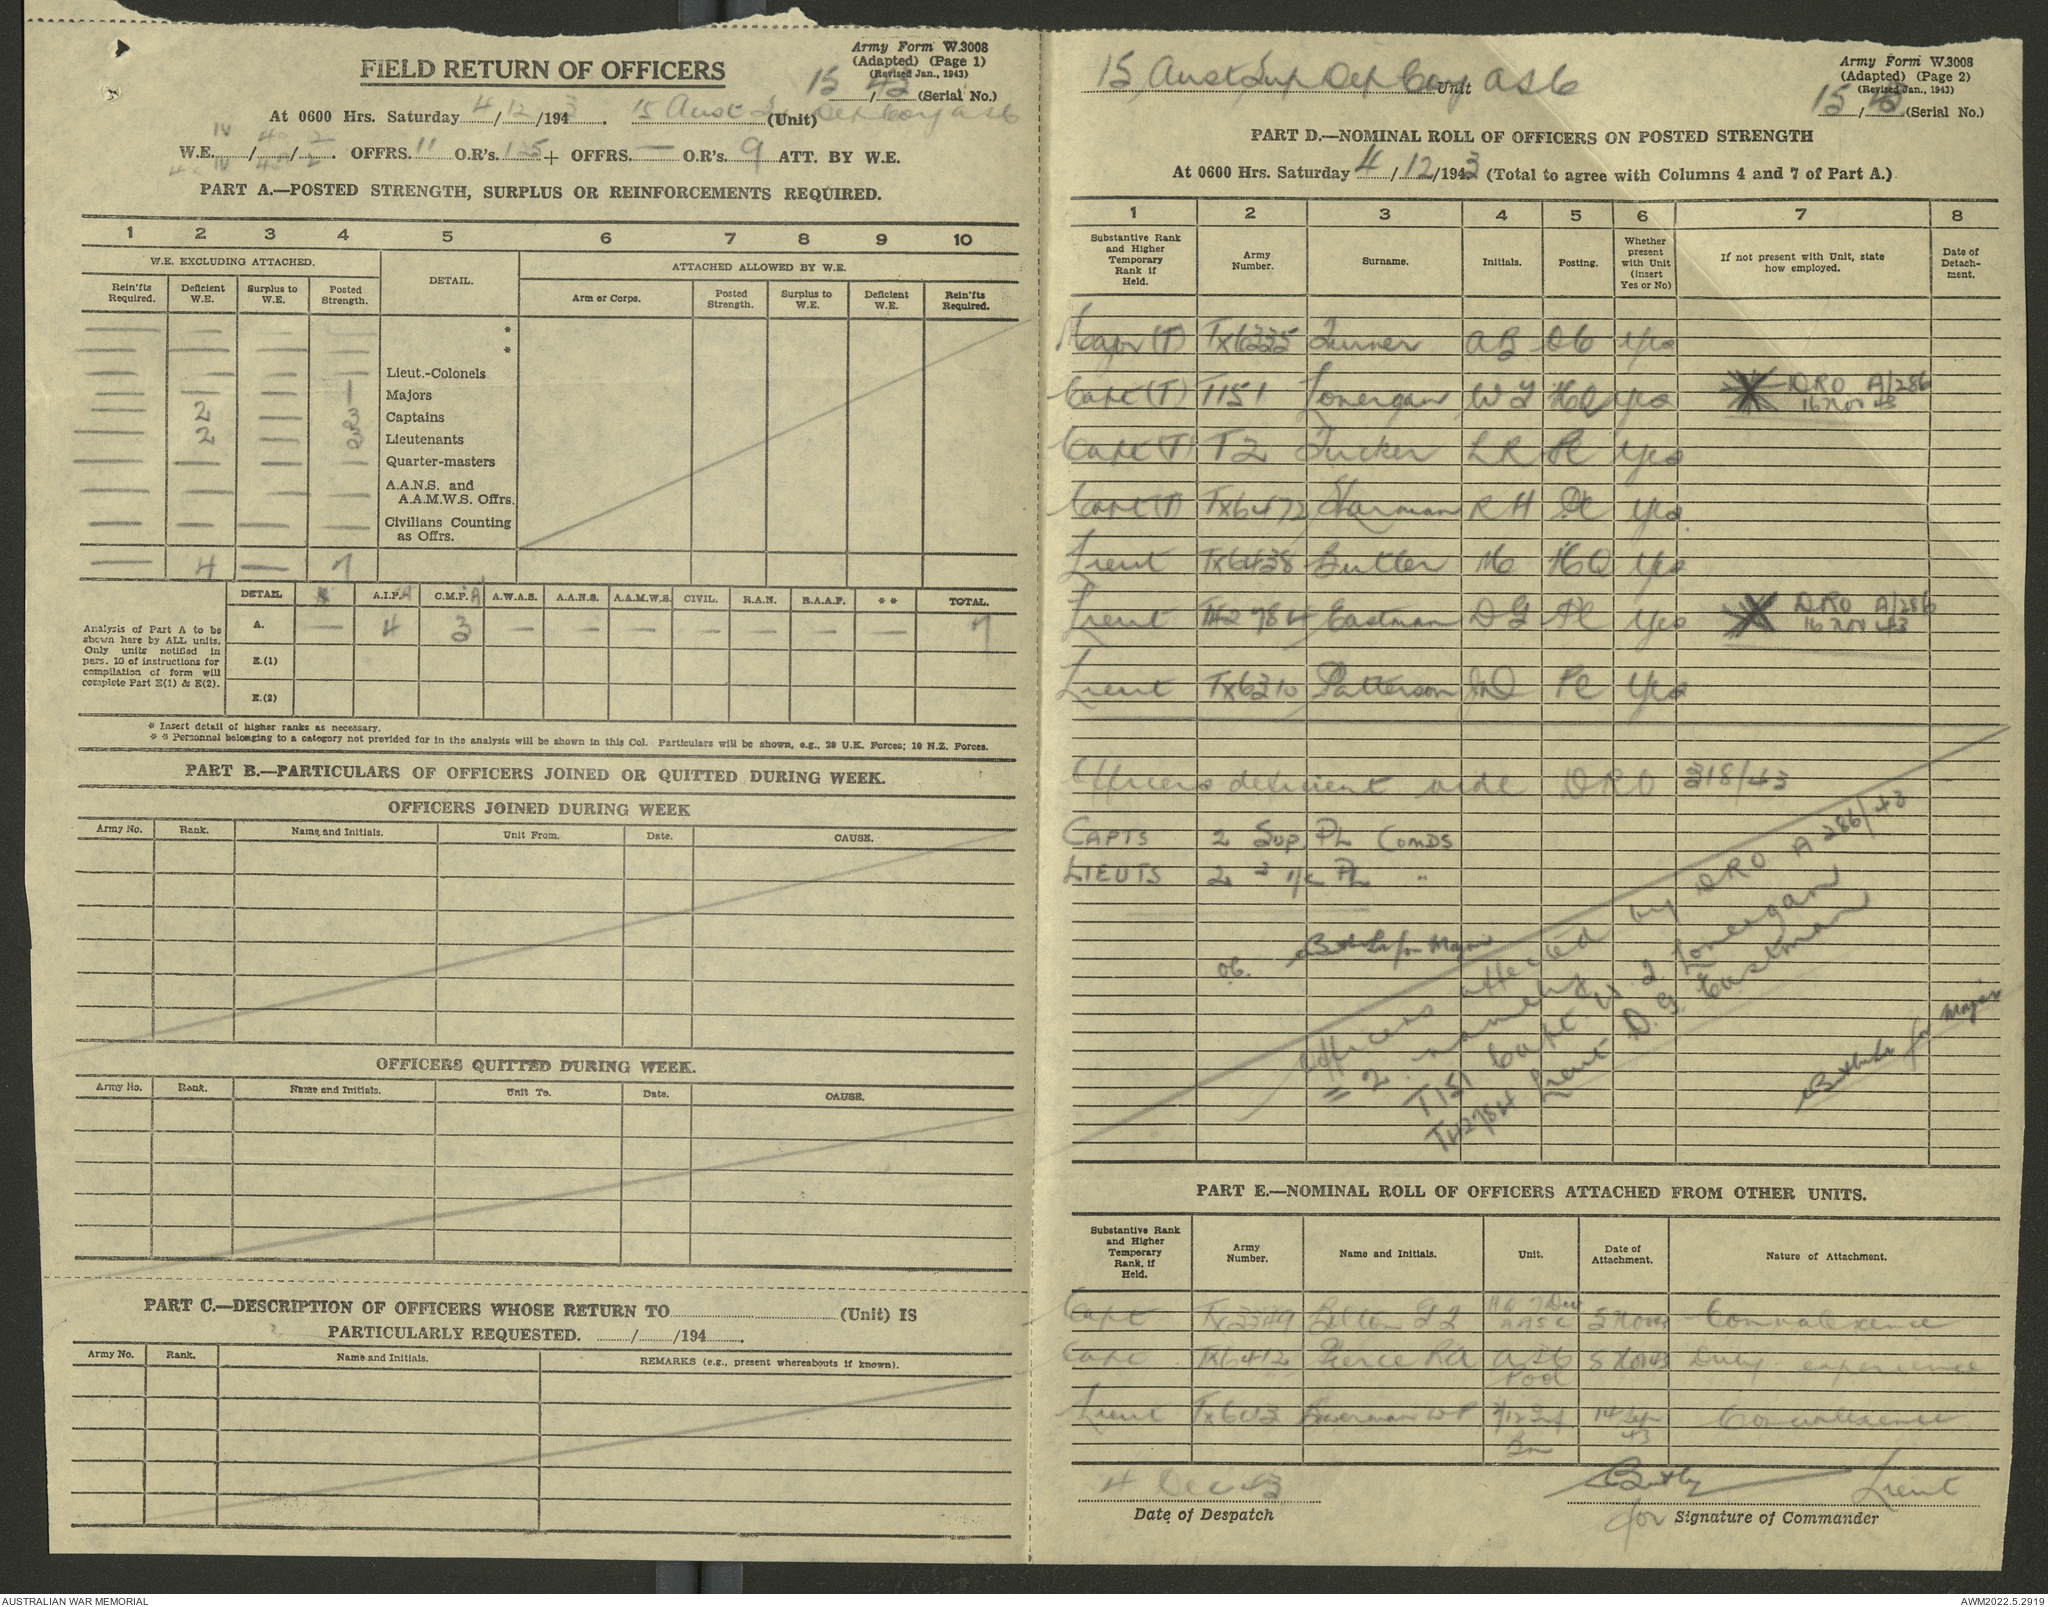 Army Form W.3008
(Adapted) (Page 1)
(Revised Jan., 1943)
FIELD RETURN OF OFFICERS
15/43 (Serial No.)
At 0600 Hrs. Saturday 4/12/1943. 15 Aust Sup Dep Coy AASC (Unit)
W.E. IV/40/2. OFFRS. 11 O.R's. 125 + OFFRS. — O.R's. 9 ATT. BY W.E.
PART A.—POSTED STRENGTH, SURPLUS OR REINFORCEMENTS REQUIRED.
1 2 3 4 5 6 7 8 9 10
W.E. EXCLUDING ATTACHED. DETAIL. ATTACHED ALLOWED BY W.E.
Rein'fts Required. Deficient W.E. Surplus to W.E. Posted Strength. Arm or Corps. Posted Strength. Surplus to W.E. Deficient W.E. Rein'fts Required.
— — — — *
— — — — *
— — — — Lieut.-Colonels
— — — 1 Majors
— 2 — 3 Captains
— 2 — 3 Lieutenants
— — — — Quarter-masters
— — — — A.A.N.S. and A.A.M.W.S. Offrs.
— — — — Civilians Counting as Offrs.
— 4 — 7
DETAIL * A.I.F. C.M.F. A.W.A.S. A.A.N.S. A.A.M.W.S. CIVIL. R.A.N. R.A.A.F. * * TOTAL.
A. — 4 3 — — — — — — — 7
E.(1)
E.(2)
Analysis of Part A to be
shown here by ALL units.
Only units notified in
pars. 10 of instructions for
compilation of form will
complete Part E(1) & E(2).
* Insert detail of higher ranks as necessary.
* * Personnel belonging to a category not provided for in the analysis will be shown in this Col. Particulars will be shown, e.g., 20 U.K. Forces; 10 N.Z. Forces.
PART B.—PARTICULARS OF OFFICERS JOINED OR QUITTED DURING WEEK.
OFFICERS JOINED DURING WEEK
Army No. Rank. Name and Initials. Unit From. Date. CAUSE.
OFFICERS QUITTED DURING WEEK.
Army No. Rank. Name and Initials. Unit To. Date. CAUSE.
PART C.—DESCRIPTION OF OFFICERS WHOSE RETURN TO (Unit) IS
PARTICULARLY REQUESTED. / /194 .
Army No. Rank. Name and Initials. REMARKS (e.g., present whereabouts if known).
Army Form W.3008
(Adapted) (Page 2)
(Revised Jan., 1943)
15 Aust Sup Dep Coy Unit AASC
15/43 (Serial No.)
PART D.—NOMINAL ROLL OF OFFICERS ON POSTED STRENGTH
At 0600 Hrs. Saturday 4/12/1943 (Total to agree with Columns 4 and 7 of Part A.)
1 2 3 4 5 6 7 8
Substantive Rank and Higher Temporary Rank if Held. Army Number. Surname. Initials. Posting. Whether present with Unit (Insert Yes or No) If not present with Unit, state how employed. Date of Detachment.
Major (T) TX6335 Turner AB OC Yes
Capt (T) T151 Lonergan WJ HQ Yes DRO A/286
16 Nov 43
Capt (T) T2 Tucker LR PC Yes
Capt (T) TX6472 Sharman RH PC Yes
Lieut TX6438 Butler HC HQ Yes
Lieut T42784 Eastman DG PC Yes DRO A/286
16 Nov 43
Lieut TX6310 Patterson PC Yes
Officers deficient vide DRO 318/43
CAPTS 2 Sup. PL COMDS
LIEUTS 2 2 i/c PL "
OC. for Major
Officers affected by DRO A 286/43
= 2 namely
T151 Capt. W J Lonergan
T42784 Lieut D.G. Eastman
for Major
PART E.—NOMINAL ROLL OF OFFICERS ATTACHED FROM OTHER UNITS.
Substantive Rank and Higher Temporary Rank, if Held. Army Number. Name and Initials. Unit. Date of Attachment. Nature of Attachment.
Capt AASC 5 Nov 43 Convalescence
Capt TX6412 Pierce RA AASC Pool 5 Nov 43 Duty experience
Lieut 2/12 Inf Bn 14 Sep 43 Convalescence
4 Dec 43
Date of Despatch
Lieut
for Signature of Commander
AUSTRALIAN WAR MEMORIAL
AWM2022.5.2919